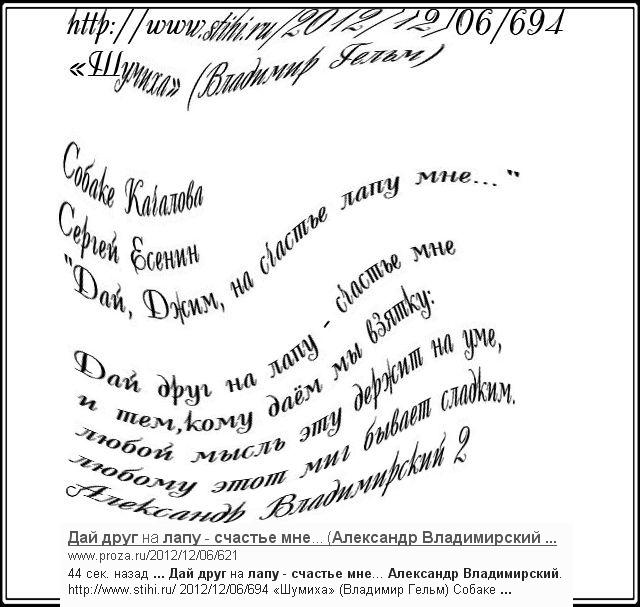 http://www.stihi.ru/2012/12/06/694
«Шумиха» (Владимир Гельм)
Собаке Качалова
Сергей Есенин
"Дай, Джим, на счастье лапу мне..."
Дай друг на лапу - счастье мне
и тем,кому даём мы взятку:
любой мысль эту держит на уме,
любому этот миг бывает сладким.
Александр Владимирский 2
Дай друг на лапу - счастье мне... (Александр Владимирский ...
www.proza.ru/2012/12/06/621
44 сек. назад ... Дай друг на лапу - счастье мне... Александр Владимирский.
http://www.stihi.ru/ 2012/12/06/694 «Шумиха» (Владимир Гельм) Собаке ...